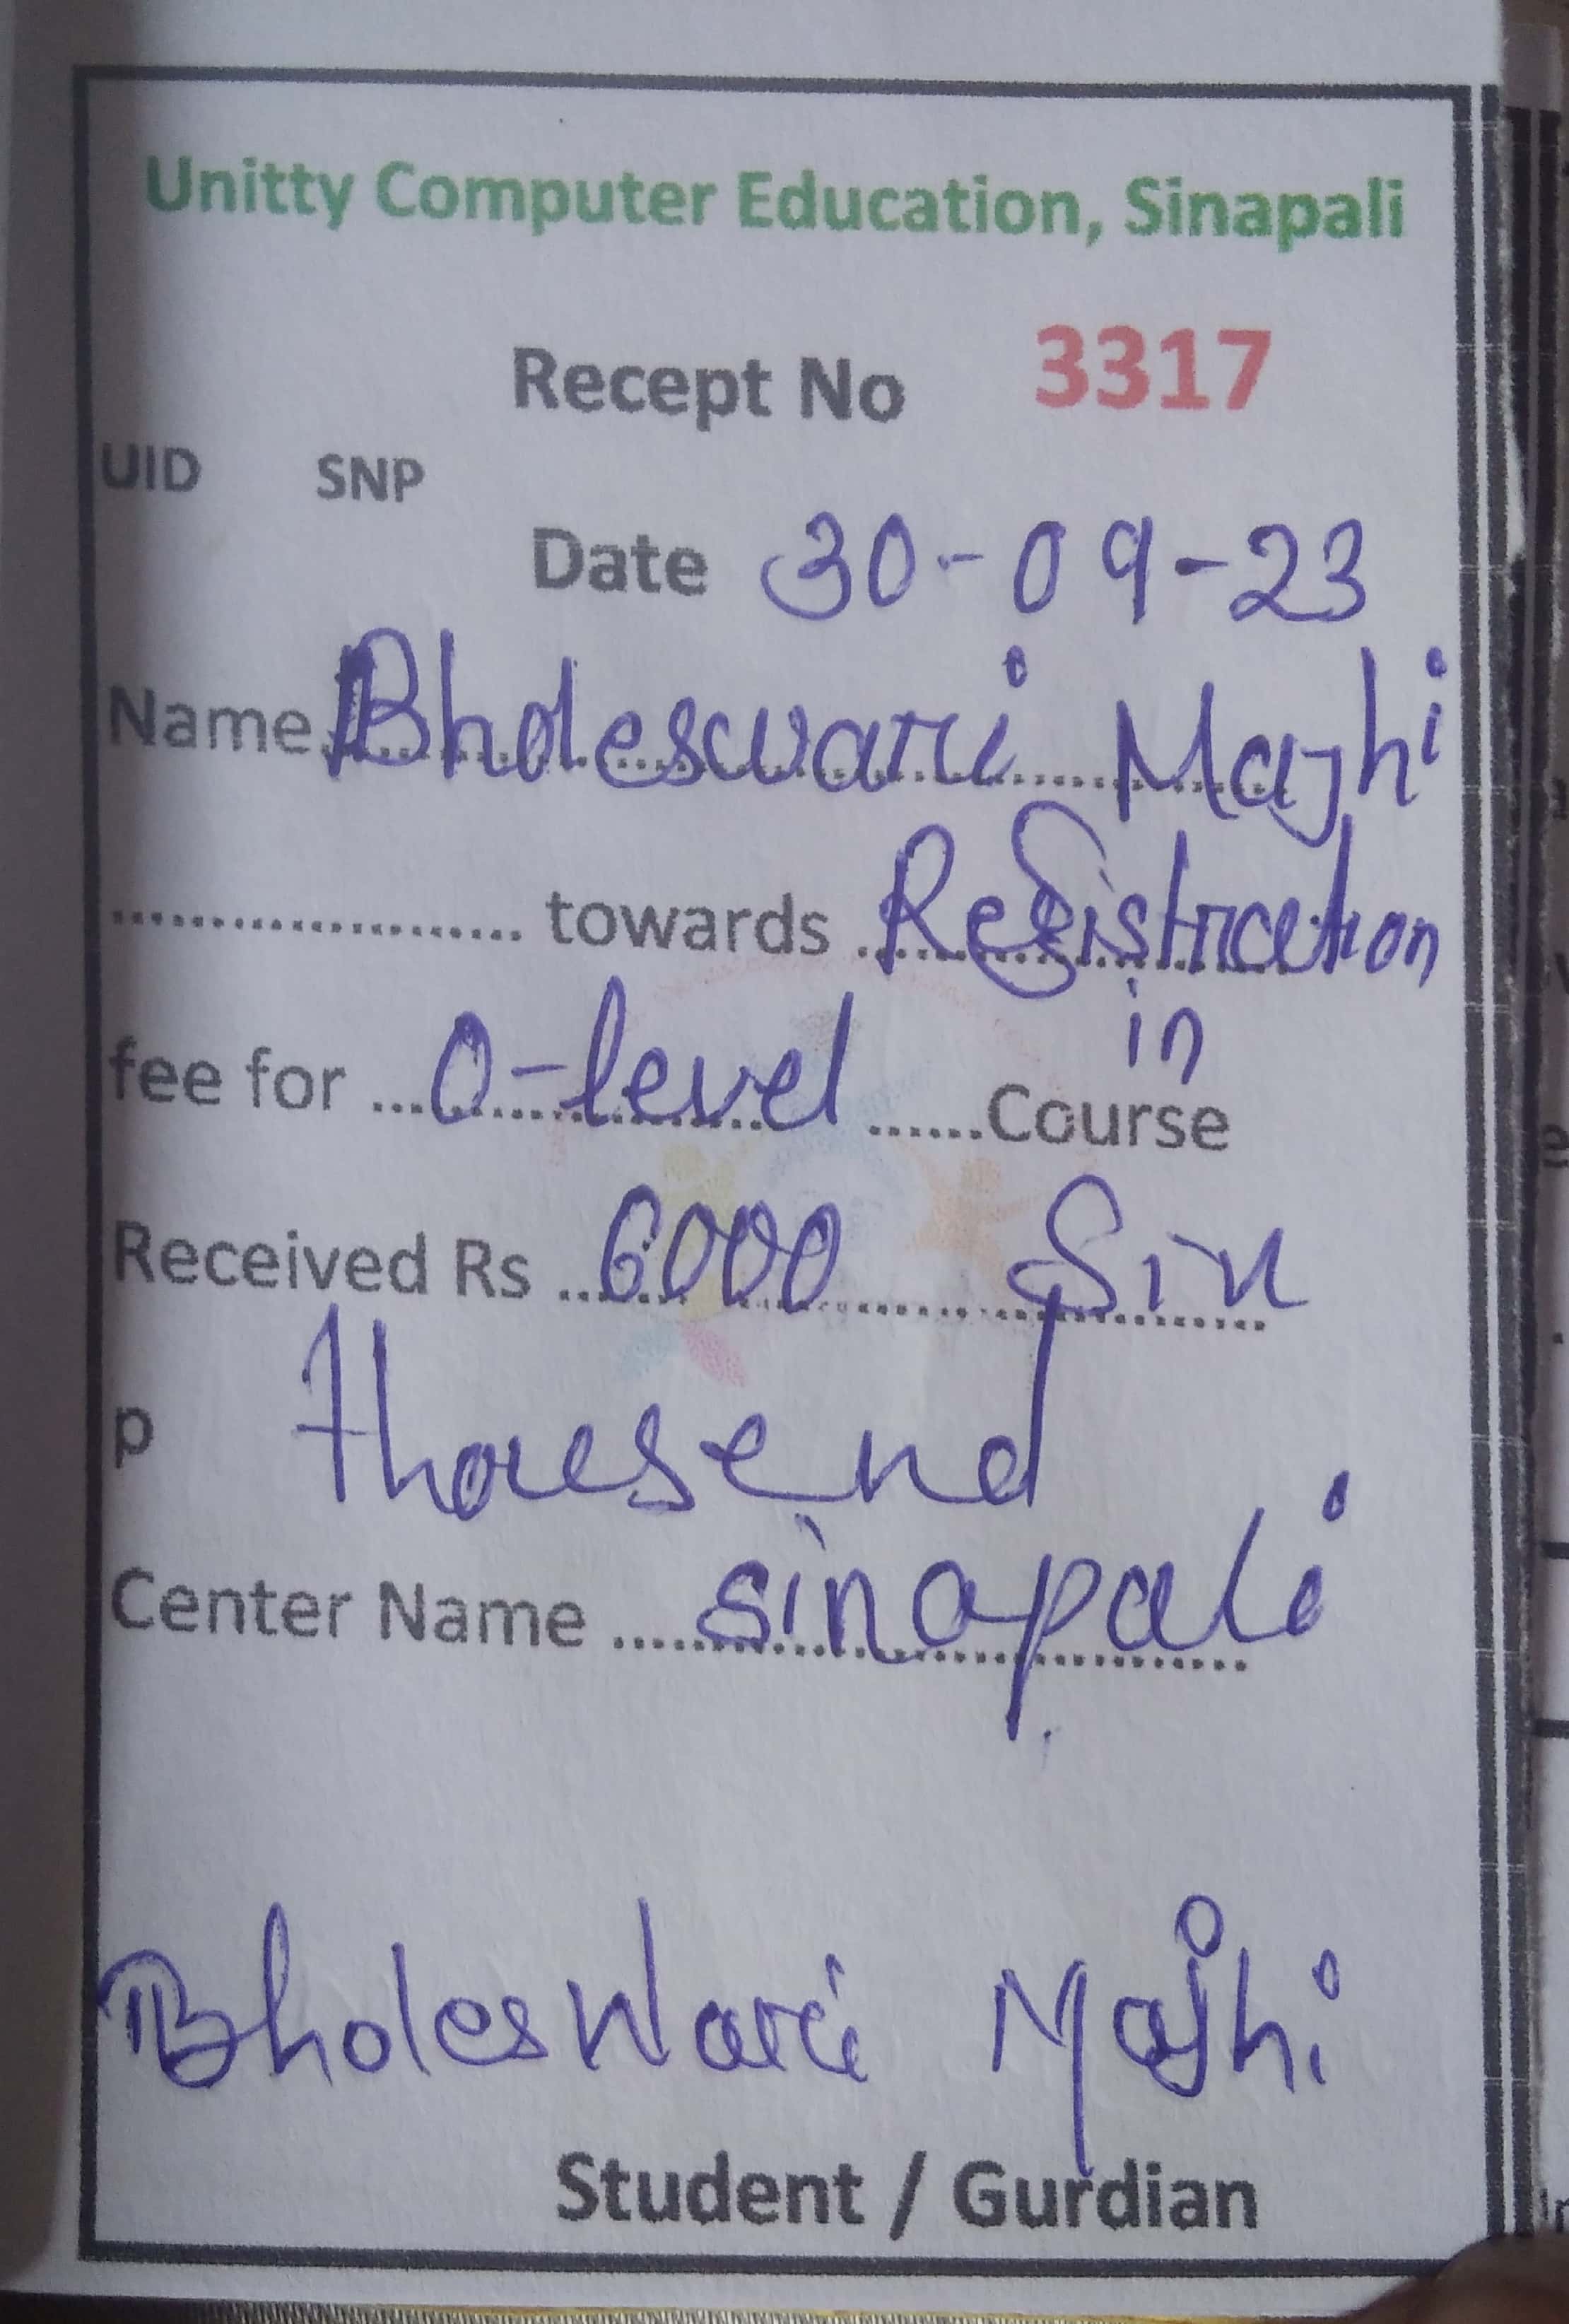 Unitty Computer Education, Sinapali
Recept No 3317
UID SNP
Date 30-09-23
Name Bholeswari Majhi
.................... towards Registration
in
fee for ... O-level .......Course
Received Rs ... 6000 Six
p Thousend
Center Name .... sinapali
Bholeswari Majhi
Student / Gurdian